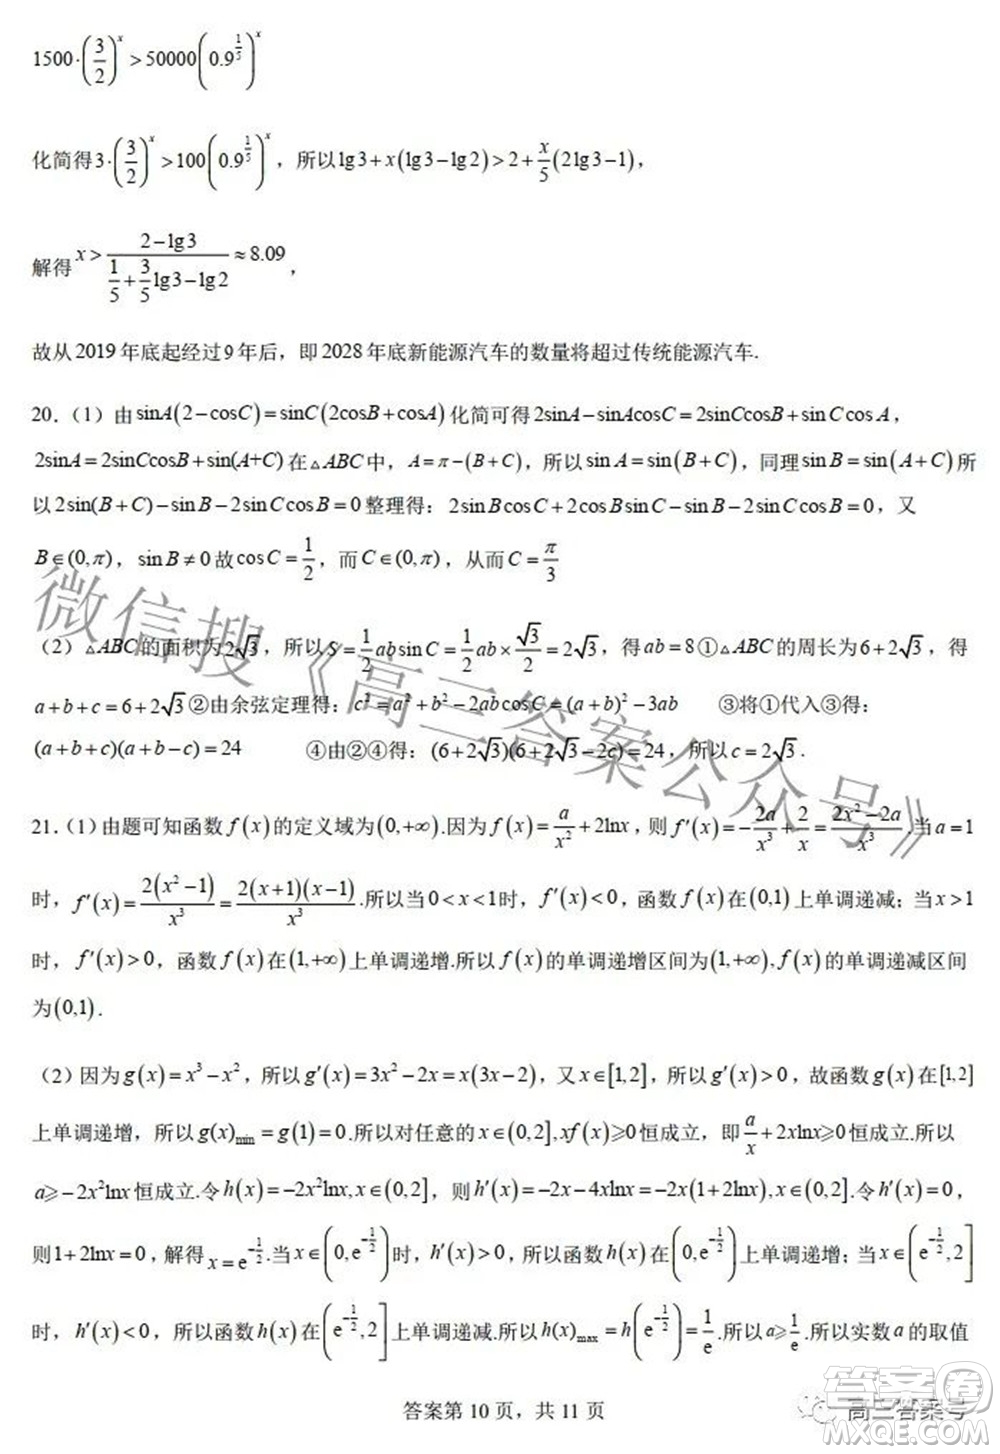 1500·(3/2)^x>50000(0.9^(1/5))^x
化简得3·(3/2)^x>100(0.9^(1/5))^x，所以lg3+x(lg3−lg2)>2+x/5(2lg3−1)，
解得x>(2−lg3)/(1/5+3/5lg3−lg2)≈8.09，
故从2019年底起经过9年后，即2028年底新能源汽车的数量将超过传统能源汽车.
20.（1）由sinA(2−cosC)=sinC(2cosB+cosA)化简可得2sinA−sinAcosC=2sinCcosB+sinCcosA，
2sinA=2sinCcosB+sin(A+C)在△ABC中，A=π−(B+C)，所以sinA=sin(B+C)，同理sinB=sin(A+C)所
以2sin(B+C)−sinB−2sinCcosB=0整理得：2sinBcosC+2cosBsinC−sinB−2sinCcosB=0，又
B∈(0,π)，sinB≠0故cosC=1/2，而C∈(0,π)，从而C=π/3
（2）△ABC的面积为2√3，所以S=1/2absinC=1/2ab×√3/2=2√3，得ab=8①△ABC的周长为6+2√3，得
a+b+c=6+2√3②由余弦定理得：c²=a²+b²−2abcosC=(a+b)²−3ab ③将①代入③得：
(a+b+c)(a+b−c)=24 ④由②④得：(6+2√3)(6+2√3−2c)=24，所以c=2√3.
21.（1）由题可知函数f(x)的定义域为(0,+∞).因为f(x)=a/x²+2lnx，则f′(x)=−2a/x³+2/x=(2x²−2a)/x³.当a=1
时，f′(x)=2(x²−1)/x³=2(x+1)(x−1)/x³.所以当0<x<1时，f′(x)<0，函数f(x)在(0,1)上单调递减；当x>1
时，f′(x)>0，函数f(x)在(1,+∞)上单调递增.所以f(x)的单调递增区间为(1,+∞),f(x)的单调递减区间
为(0,1).
（2）因为g(x)=x³−x²，所以g′(x)=3x²−2x=x(3x−2)，又x∈[1,2]，所以g′(x)>0，故函数g(x)在[1,2]
上单调递增，所以g(x)min=g(1)=0.所以对任意的x∈(0,2],xf(x)⩾0恒成立，即a/x+2xlnx⩾0恒成立.所以
a⩾−2x²lnx恒成立.令h(x)=−2x²lnx,x∈(0,2]，则h′(x)=−2x−4xlnx=−2x(1+2lnx),x∈(0,2].令h′(x)=0，
则1+2lnx=0，解得x=e^(−1/2).当x∈(0,e^(−1/2))时，h′(x)>0，所以函数h(x)在(0,e^(−1/2))上单调递增；当x∈(e^(−1/2),2]
时，h′(x)<0，所以函数h(x)在(e^(−1/2),2]上单调递减.所以h(x)max=h(e^(−1/2))=1/e.所以a⩾1/e.所以实数a的取值
答案第10页，共11页
微信搜《高三答案公众号》
高三答案号
答案圈
MXQE.COM